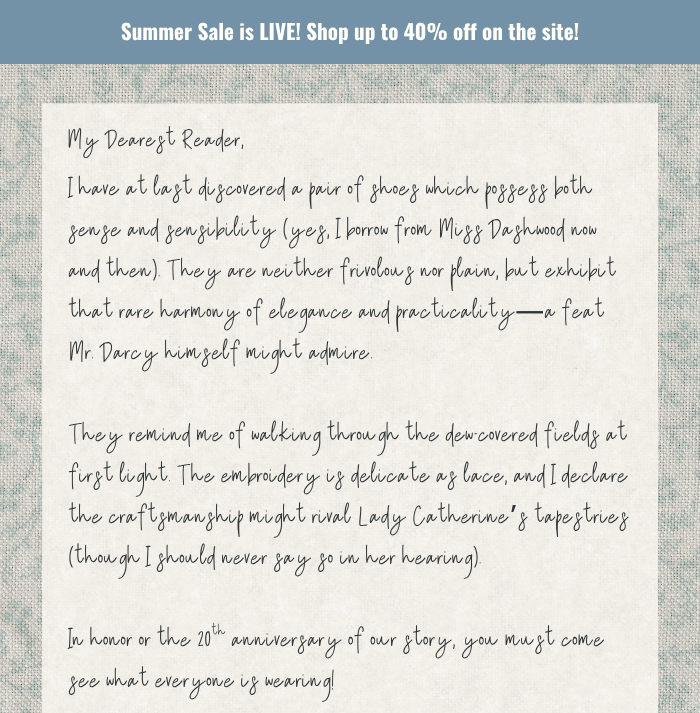 Summer Sale is LIVE! Shop up to 40% off on the site!
My Dearest Reader,
I have at last discovered a pair of shoes which possess both
sense and sensibility (yes, I borrow from Miss Dashwood now
and then). They are neither frivolous nor plain, but exhibit
that rare harmony of elegance and practicality—a feat
Mr. Darcy himself might admire.
They remind me of walking through the dew-covered fields at
first light. The embroidery is delicate as lace, and I declare
the craftsmanship might rival Lady Catherine's tapestries
(though I should never say so in her hearing).
In honor or the 20th anniversary of our story, you must come
see what everyone is wearing!